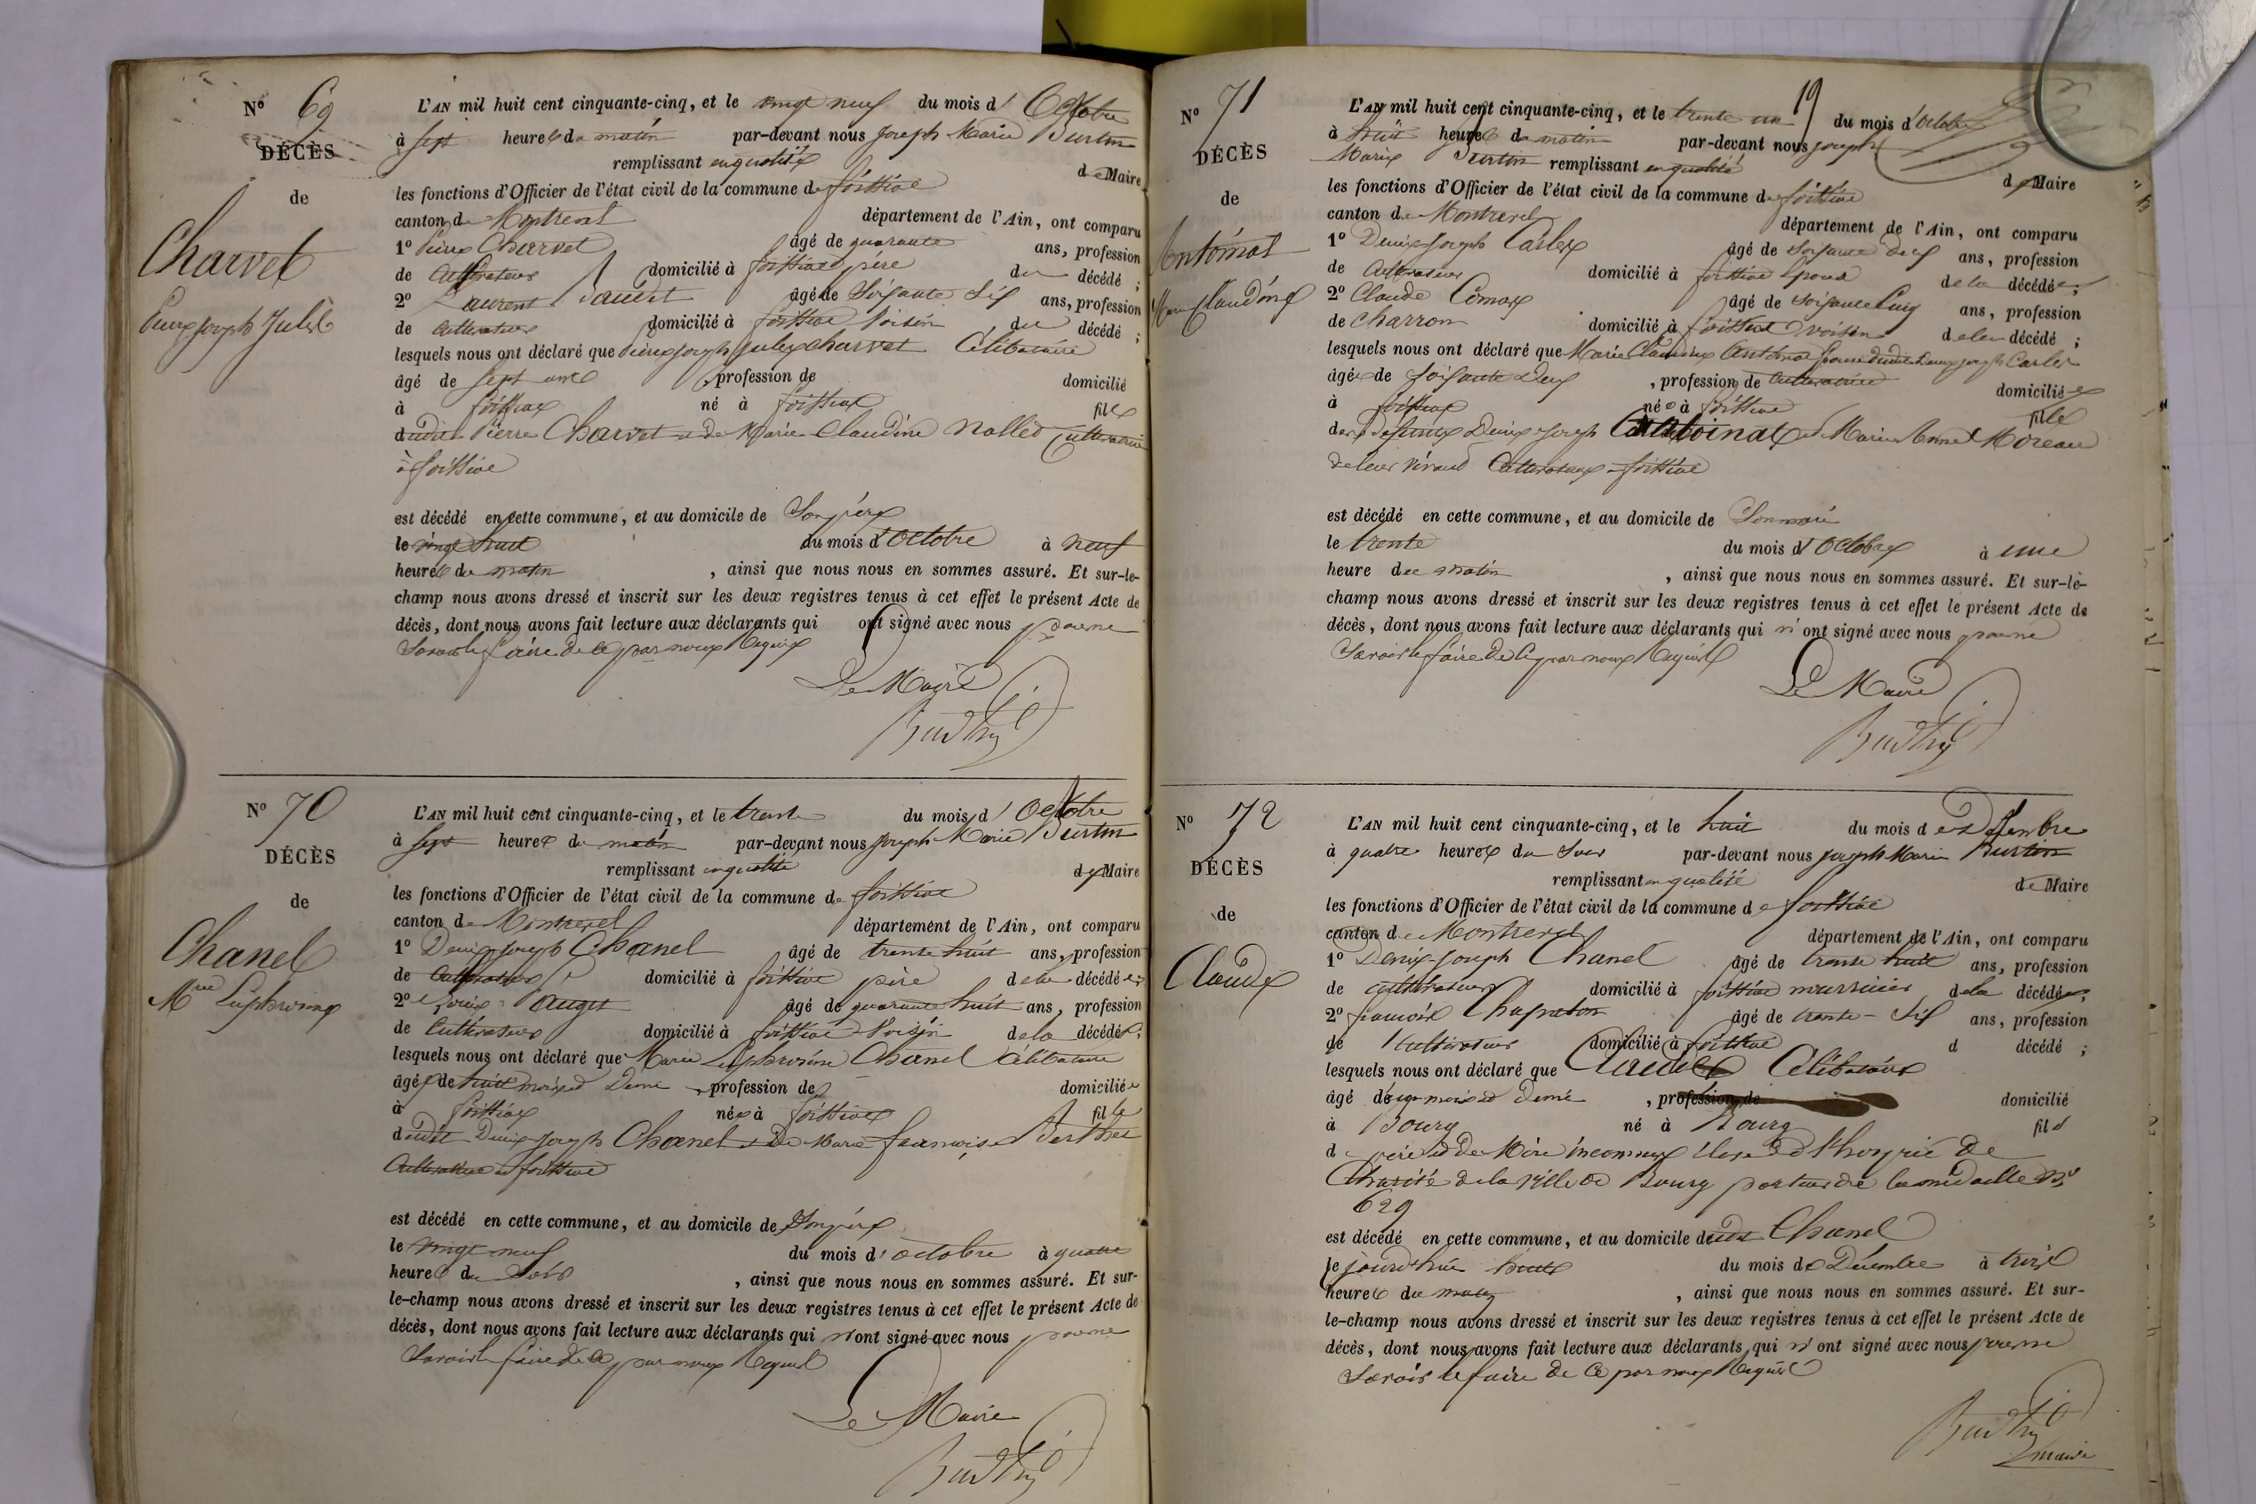 N° 69
DÉCÈS
de
Charvet
Pierre Joseph Jules
L'AN mil huit cent cinquante-cinq, et le vingt neuf du mois d' Octobre
à sept heures du matin par-devant nous Joseph Marie Burtin
remplissant en qualité de Maire
les fonctions d'Officier de l'état civil de la commune de foissiat
canton de Montrevel département de l'Ain, ont comparu
1° Pierre Charvet âgé de quarante ans, profession
de cultivateur domicilié à foissiat père du décédé ;
2° Laurent âgé de Soixante Six ans, profession
de cultivateur domicilié à foissiat voisin du décédé ;
lesquels nous ont déclaré que Pierre Joseph Jules Charvet Célibataire
âgé de sept ans , profession de domicilié
à foissiat né à foissiat fils
dudit Pierre Charvet et de Marie Claudine Nallet Cultivateurs
à foissiat
est décédé en cette commune, et au domicile de Son père
le vingt huit du mois d'Octobre à neuf
heures du matin , ainsi que nous nous en sommes assuré. Et sur-le-
champ nous avons dressé et inscrit sur les deux registres tenus à cet effet le présent Acte de
décès, dont nous avons fait lecture aux déclarants qui ont signé avec nous pour ne
Savoir le faire de ce par nous Requis
Le Maire
Burtin
N° 70
DÉCÈS
de
Chanel
Mrie
L'AN mil huit cent cinquante-cinq, et le trente du mois d' Octobre
à sept heures du matin par-devant nous Joseph Marie Burtin
remplissant en qualité de Maire
les fonctions d'Officier de l'état civil de la commune de foissiat
canton de Montrevel département de l'Ain, ont comparu
1° Denis Joseph Chanel âgé de trente huit ans, profession
de Cultivateur domicilié à foissiat père de la décédée
2° âgé de quarante huit ans, profession
de Cultivateur domicilié à foissiat Voisin de la décédée ;
lesquels nous ont déclaré que Marie Chanel Célibataire
âgée de huit mois et Demi , profession de domiciliée
à foissiat née à foissiat fille
dudit Denis Joseph Chanel et De Marie françoise Berthet
Cultivateurs à foissiat
est décédé en cette commune, et au domicile de Son père
le vingt neuf du mois d'octobre à quatre
heures du Soir , ainsi que nous nous en sommes assuré. Et sur-
le-champ nous avons dressé et inscrit sur les deux registres tenus à cet effet le présent Acte de
décès, dont nous avons fait lecture aux déclarants qui n'ont signé avec nous pour ne
Savoir le faire de ce par nous Requis
Le Maire
Burtin
19
N° 71
DÉCÈS
de
Antoinat
Marie Claudine
L'AN mil huit cent cinquante-cinq, et le trente un du mois d'Octobre
à huit heures du matin par-devant nous Joseph
Marie Burtin remplissant en qualité de Maire
les fonctions d'Officier de l'état civil de la commune de foissiat
canton de Montrevel département de l'Ain, ont comparu
1° Denis Joseph Carlet âgé de Soixante deux ans, profession
de Cultivateur domicilié à foissiat Epoux de la décédée ;
2° Claude âgé de Soixante Cinq ans, profession
de Charron domicilié à foissiat voisin de la décédé ;
lesquels nous ont déclaré que Marie Claudine Antoinat femme dudit Denis Joseph Carlet
âgée de Soixante Deux , profession de Cultivatrice domiciliée
à foissiat née à foissiat fille
des défunts Denis Joseph Antoinat et Marie Anne Moreau
de leur vivant Cultivateurs à foissiat
est décédé en cette commune, et au domicile de Son mari
le trente du mois d'Octobre à une
heure du matin , ainsi que nous nous en sommes assuré. Et sur-le-
champ nous avons dressé et inscrit sur les deux registres tenus à cet effet le présent Acte de
décès, dont nous avons fait lecture aux déclarants qui n'ont signé avec nous pour ne
Savoir le faire de ce par nous Requis
Le Maire
Burtin
N° 72
DÉCÈS
de
Claude
L'AN mil huit cent cinquante-cinq, et le huit du mois de Décembre
à quatre heures du Soir par-devant nous Joseph Marie Burtin
remplissant en qualité de Maire
les fonctions d'Officier de l'état civil de la commune de foissiat
canton de Montrevel département de l'Ain, ont comparu
1° Denis Joseph Chanel âgé de trente huit ans, profession
de cultivateur domicilié à foissiat nourricier de la décédée ;
2° françois Chapraton âgé de trente-Six ans, profession
de Cultivateur domicilié à foissiat d décédé ;
lesquels nous ont déclaré que Claude Célibataire
âgé de mois et Demi , profession de domicilié
à Bourg né à Bourg fils
de père et de Mère inconnus Elève d l'hospice de
Charité de la Ville de Bourg porteur de la médaille n°
629
est décédé en cette commune, et au domicile dudit Chanel
le jourd'hui huit du mois de Décembre à trois
heures du matin , ainsi que nous nous en sommes assuré. Et sur-
le-champ nous avons dressé et inscrit sur les deux registres tenus à cet effet le présent Acte de
décès, dont nous avons fait lecture aux déclarants qui n'ont signé avec nous pour ne
Savoir le faire de ce par nous Requis
Burtin
maire